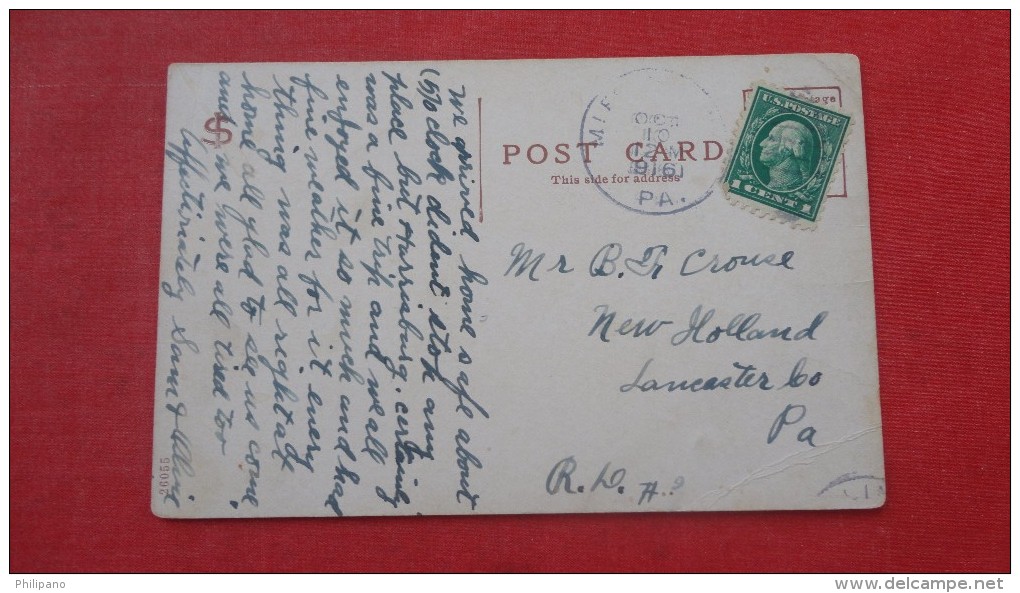 We arrived home safe about
(6) o clock dident stop any
place but Harrisburg. certainly
was a fine trip and we all
enjoyed it so much and had
fine weather for it every
thing was all right at
home all glad to se us come
and we were all tired too
Affectionately Sam &
26055
POST CARD
This side for address
OCT
10
12 M
1916
PA.
U.S. POSTAGE
1 CENT 1
Mr B. F. Crouse
New Holland
Lancaster Co
Pa
R.D.
Philipano
delcampe.net